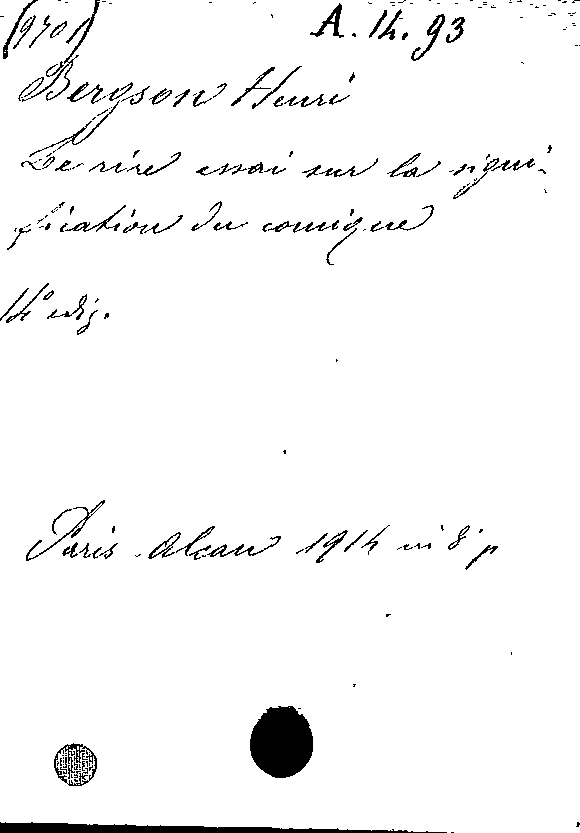 (9701)
A. 14. 93
Bergson Henri
Le rire essai sur la signi-
fication du comique
14° ediz.
Paris Alcan 1914 in 8° p